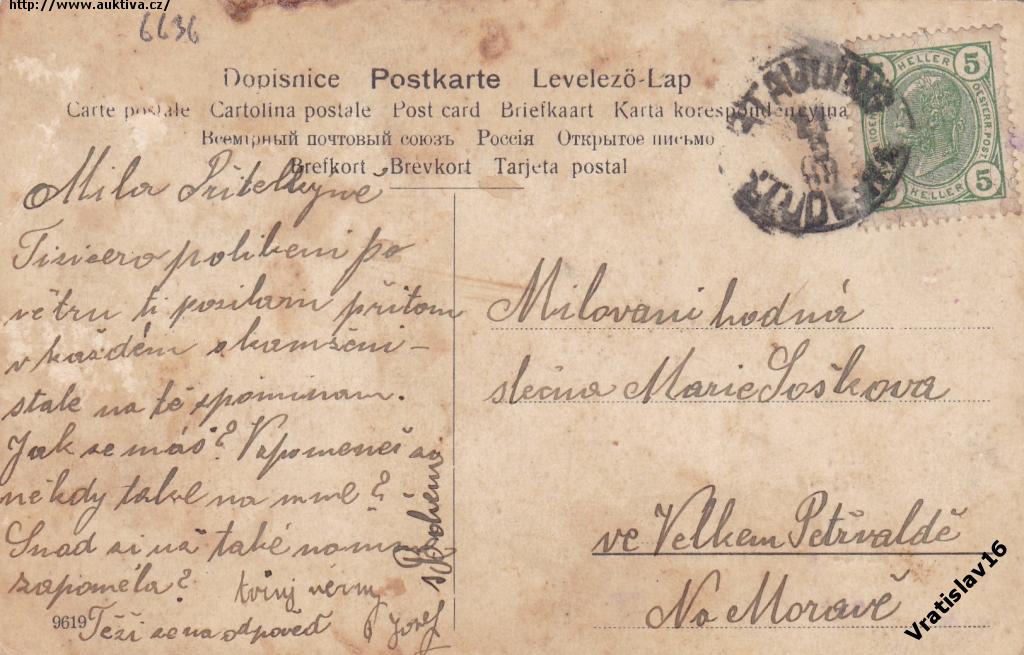 http://www.auktiva.cz/
6636
Dopisnice Postkarte Levelező-Lap
Carte postale Cartolina postale Post card Briefkaart Karta korespondencyjna
Всемірный почтовый союзъ Россія Открытое письмо
Brefkort Brevkort Tarjeta postal
5 HELLER 5
5 HELLER
STAUDING
STUDÉNKA
Mila Přitelkyně
Tisicero polibeni po
větru ti posilam přitom
v každém okamženi-
stale na tě zpominam.
Jak se máš? Vzpomeneš si
někdy také na mne?
Snad si už také na mne
zapoměla? tvůj věrny
Těši se na odpověď Josef
s Bohem
9619
Milovani hodná
slečna Marie Soškova
ve Velkem Petřvaldě
Na Moravě
Vratislav16